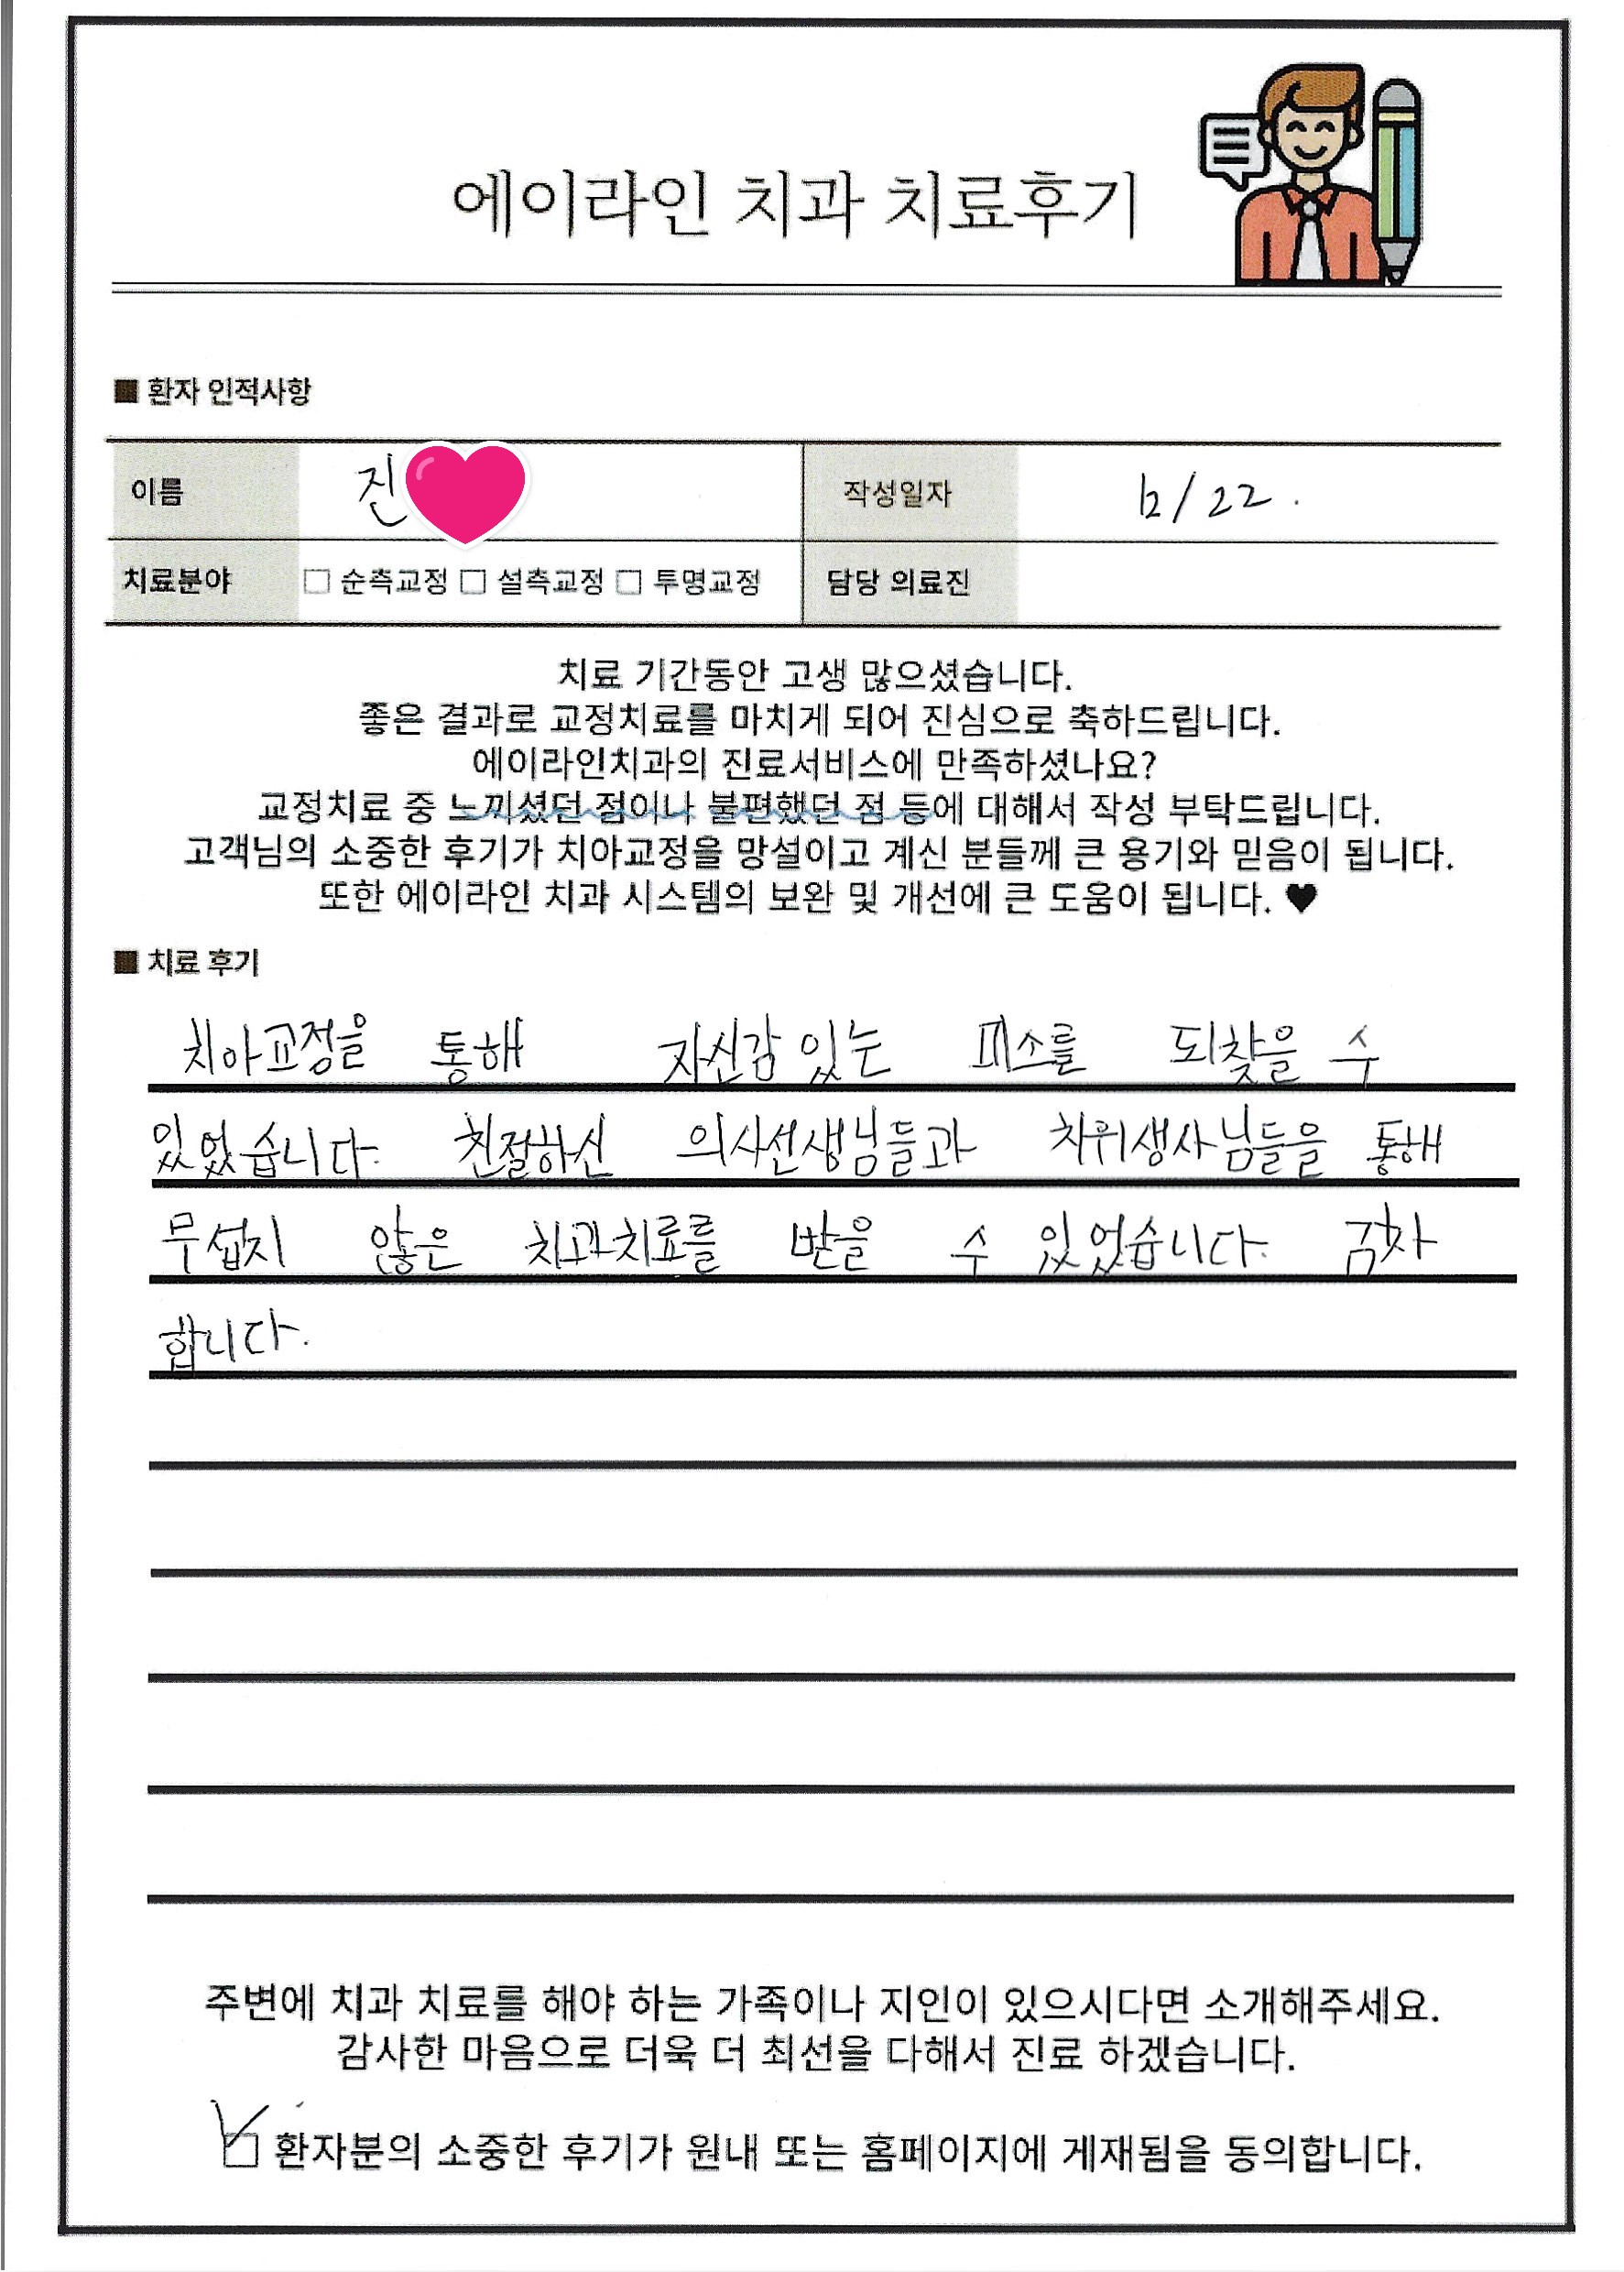 에이라인 치과 치료후기
■ 환자 인적사항
이름 진 작성일자 12/22.
치료분야 □ 순측교정 □ 설측교정 □ 투명교정 담당 의료진
치료 기간동안 고생 많으셨습니다.
좋은 결과로 교정치료를 마치게 되어 진심으로 축하드립니다.
에이라인치과의 진료서비스에 만족하셨나요?
교정치료 중 느끼셨던 점이나 불편했던 점 등에 대해서 작성 부탁드립니다.
고객님의 소중한 후기가 치아교정을 망설이고 계신 분들께 큰 용기와 믿음이 됩니다.
또한 에이라인 치과 시스템의 보완 및 개선에 큰 도움이 됩니다. ♥
■ 치료 후기
치아교정을 통해 자신감 있는 미소를 되찾을 수
있었습니다. 친절하신 의사선생님들과 치위생사님들을 통해
무섭지 않은 치과치료를 받을 수 있었습니다.
합니다.
주변에 치과 치료를 해야 하는 가족이나 지인이 있으시다면 소개해주세요.
감사한 마음으로 더욱 더 최선을 다해서 진료 하겠습니다.
☑ 환자분의 소중한 후기가 원내 또는 홈페이지에 게재됨을 동의합니다.